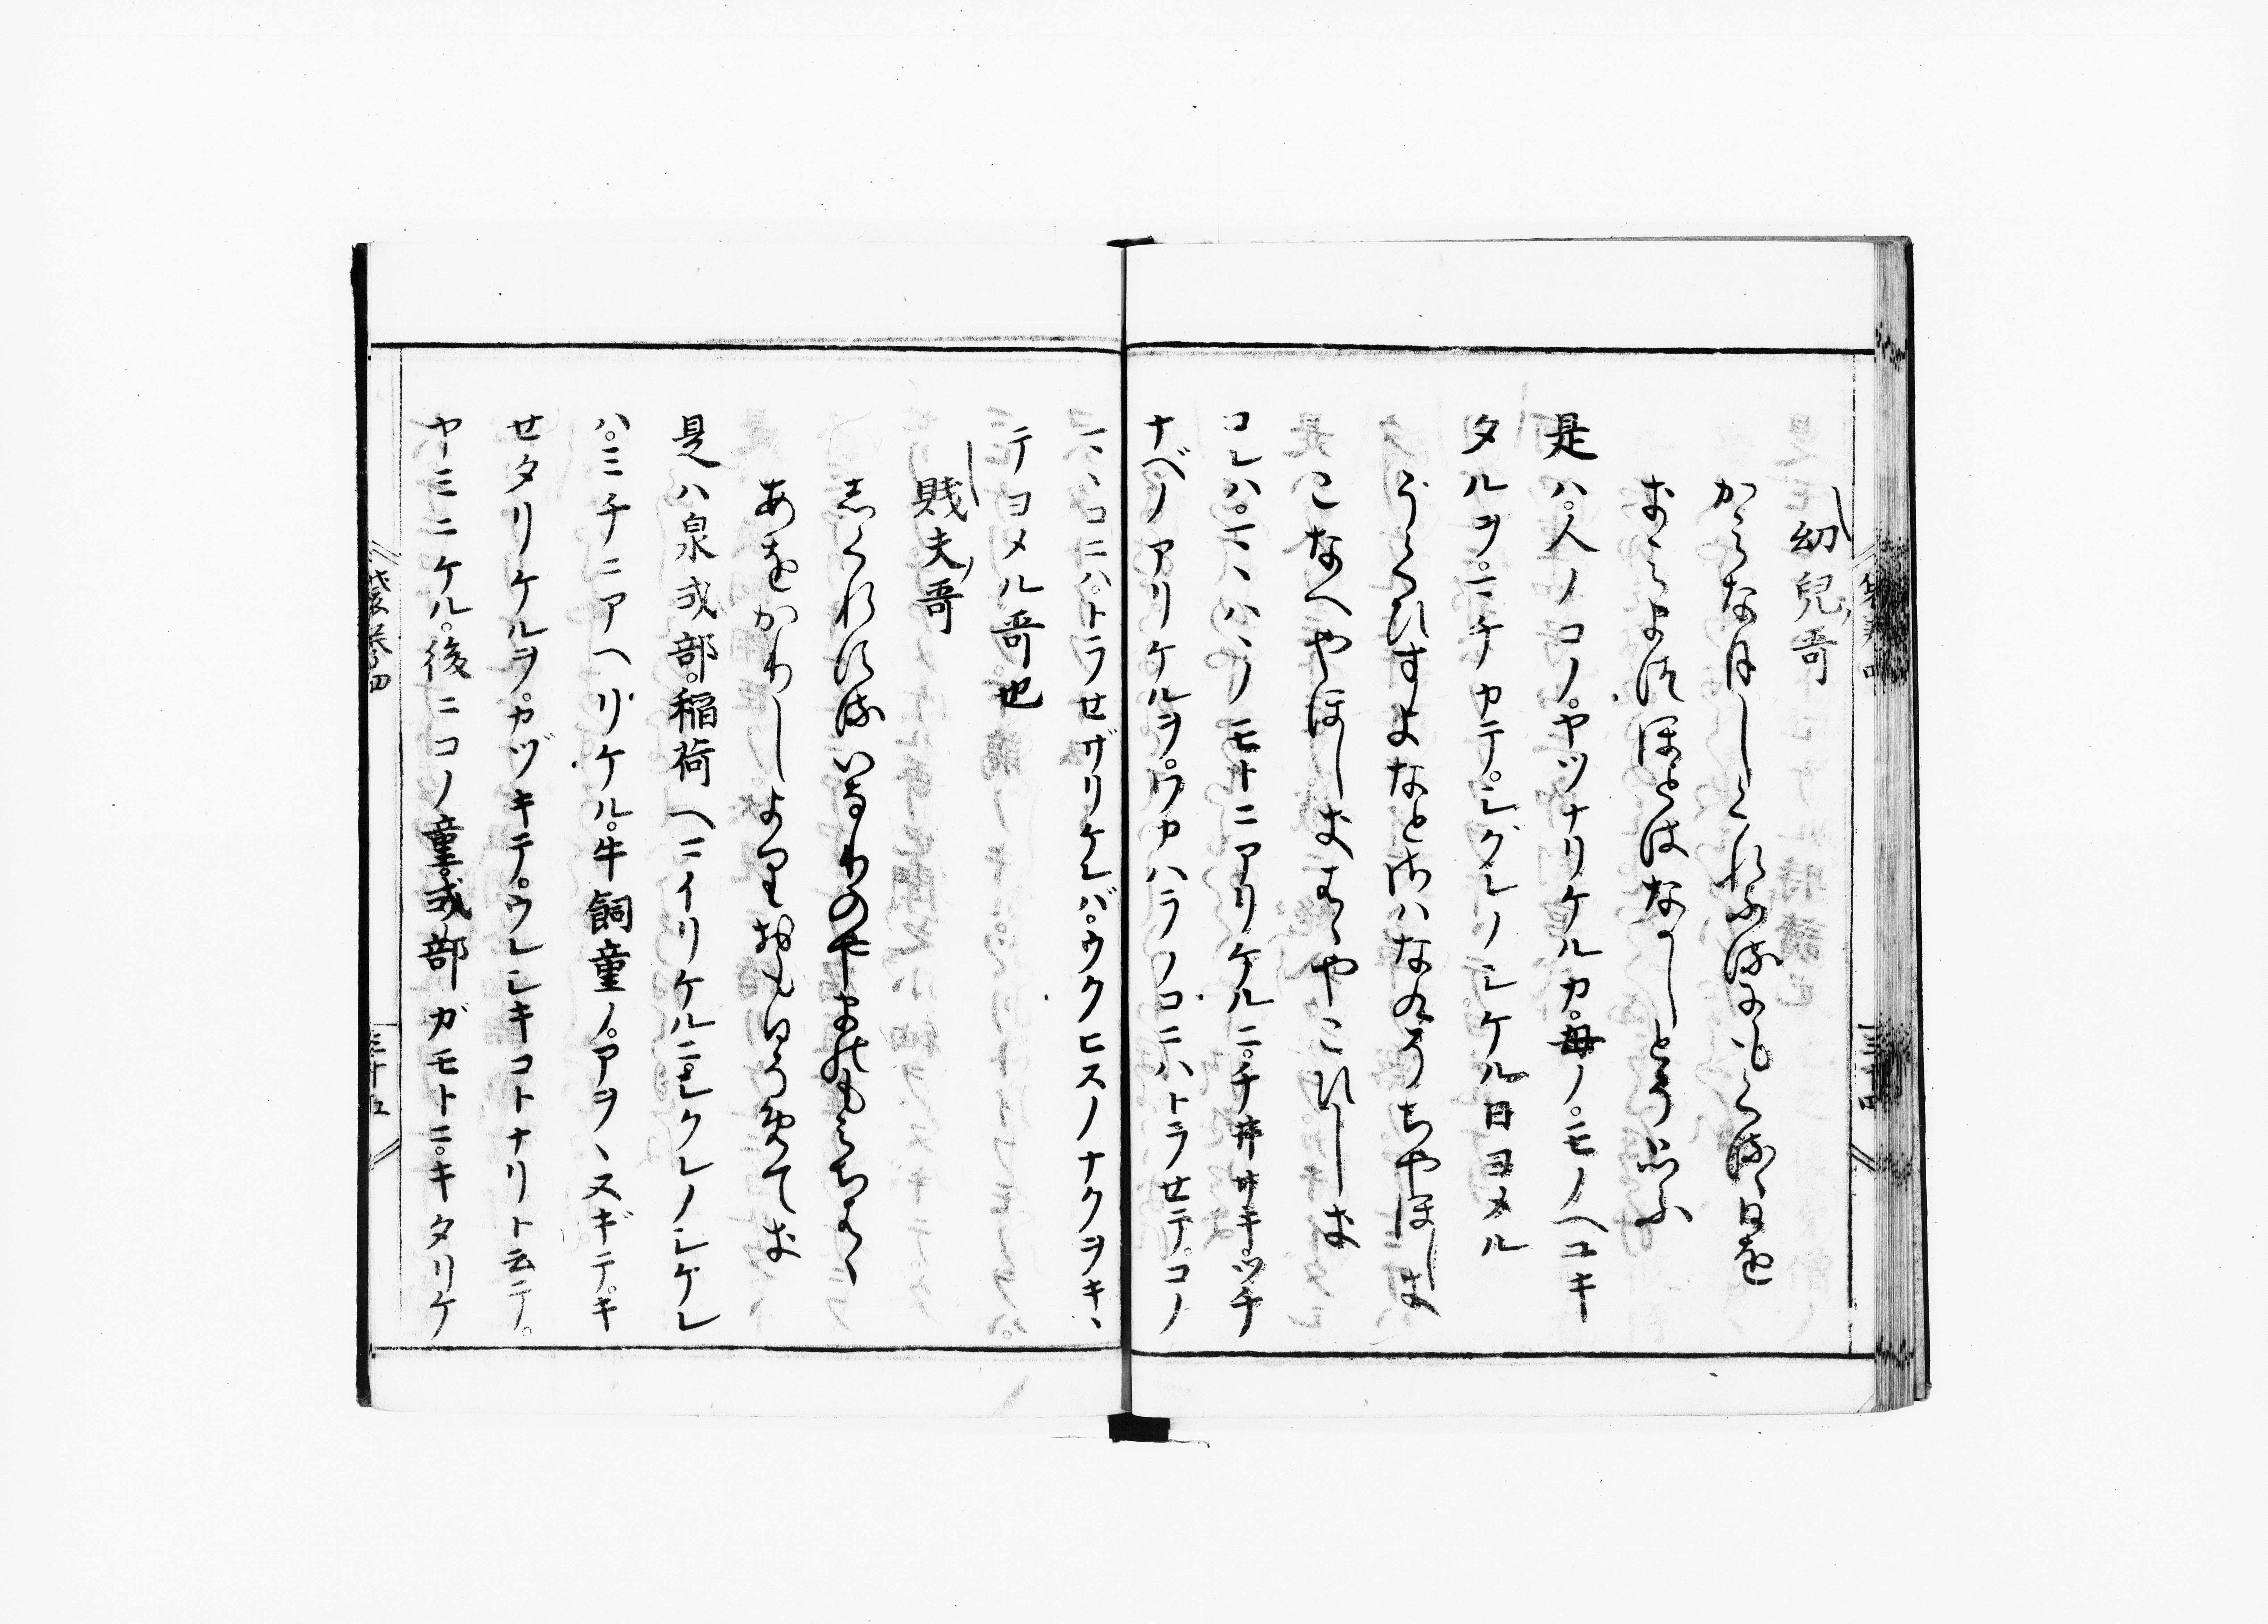 幼兒哥
かミな月しくれふるにもくるゝ日を
きミまつほとはなかしとそ思ふ
是ハ。人ノコノ。ヤツナリケルカ。母ノ。モノヘユキ
タルヲ。マチカテ。シグレノシケル日ヨメル
うくひすよなとさハなくそちやほしき
こなへやほしきはゝやこひしき
コレハ。マヽハヽノモトニアリケルニ。チ井サキツチ
ナベノアリケルヲ。ワカハラノコニハトラセテ。コノ
マヽコニハ。トラセザリケレバ。ウクヒスノナクヲキヽ
テヨメル哥也
賎夫哥
しくれするいなりのやまのもミちはゝ
あをかりしよりおもひそめてき
是ハ泉式部。稲荷ヘマイリケルニ。シクレノシケレ
ハ。ミチニアヘリケル。牛飼童ノ。アヲヽヌギテ。キ
セタリケルヲ。カヅキテ。ウレシキコトナリト云テ。
ヤミニケル。後ニコノ童。式部ガモトニ。キタリケ
袋巻四
三十五